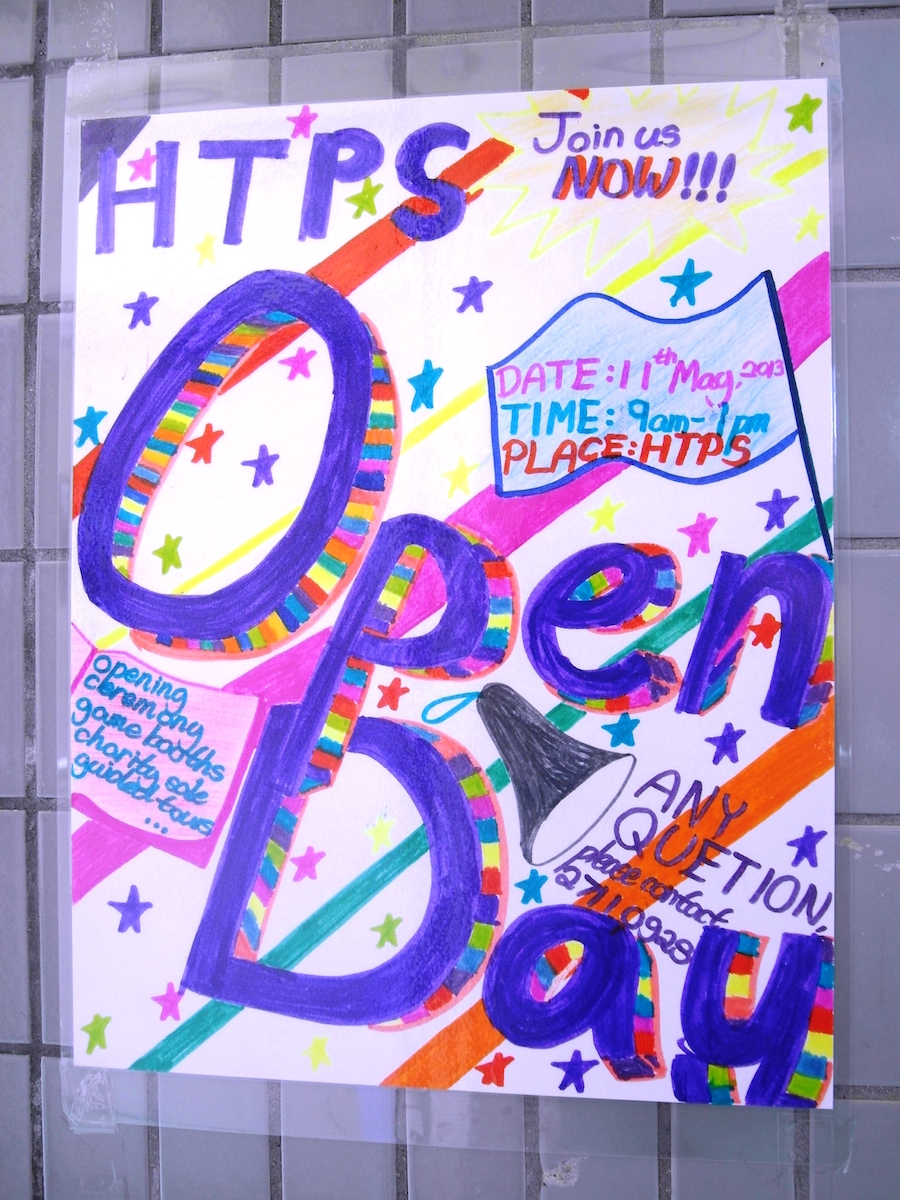 HTPS
Join us
NOW!!!
DATE: 11th May, 2013
TIME: 9am-1pm
PLACE: HTPS
Open
Opening
ceremony
game booths
charity sole
guided-tours
...
ANY
QUETION,
please contact
27110928
Day